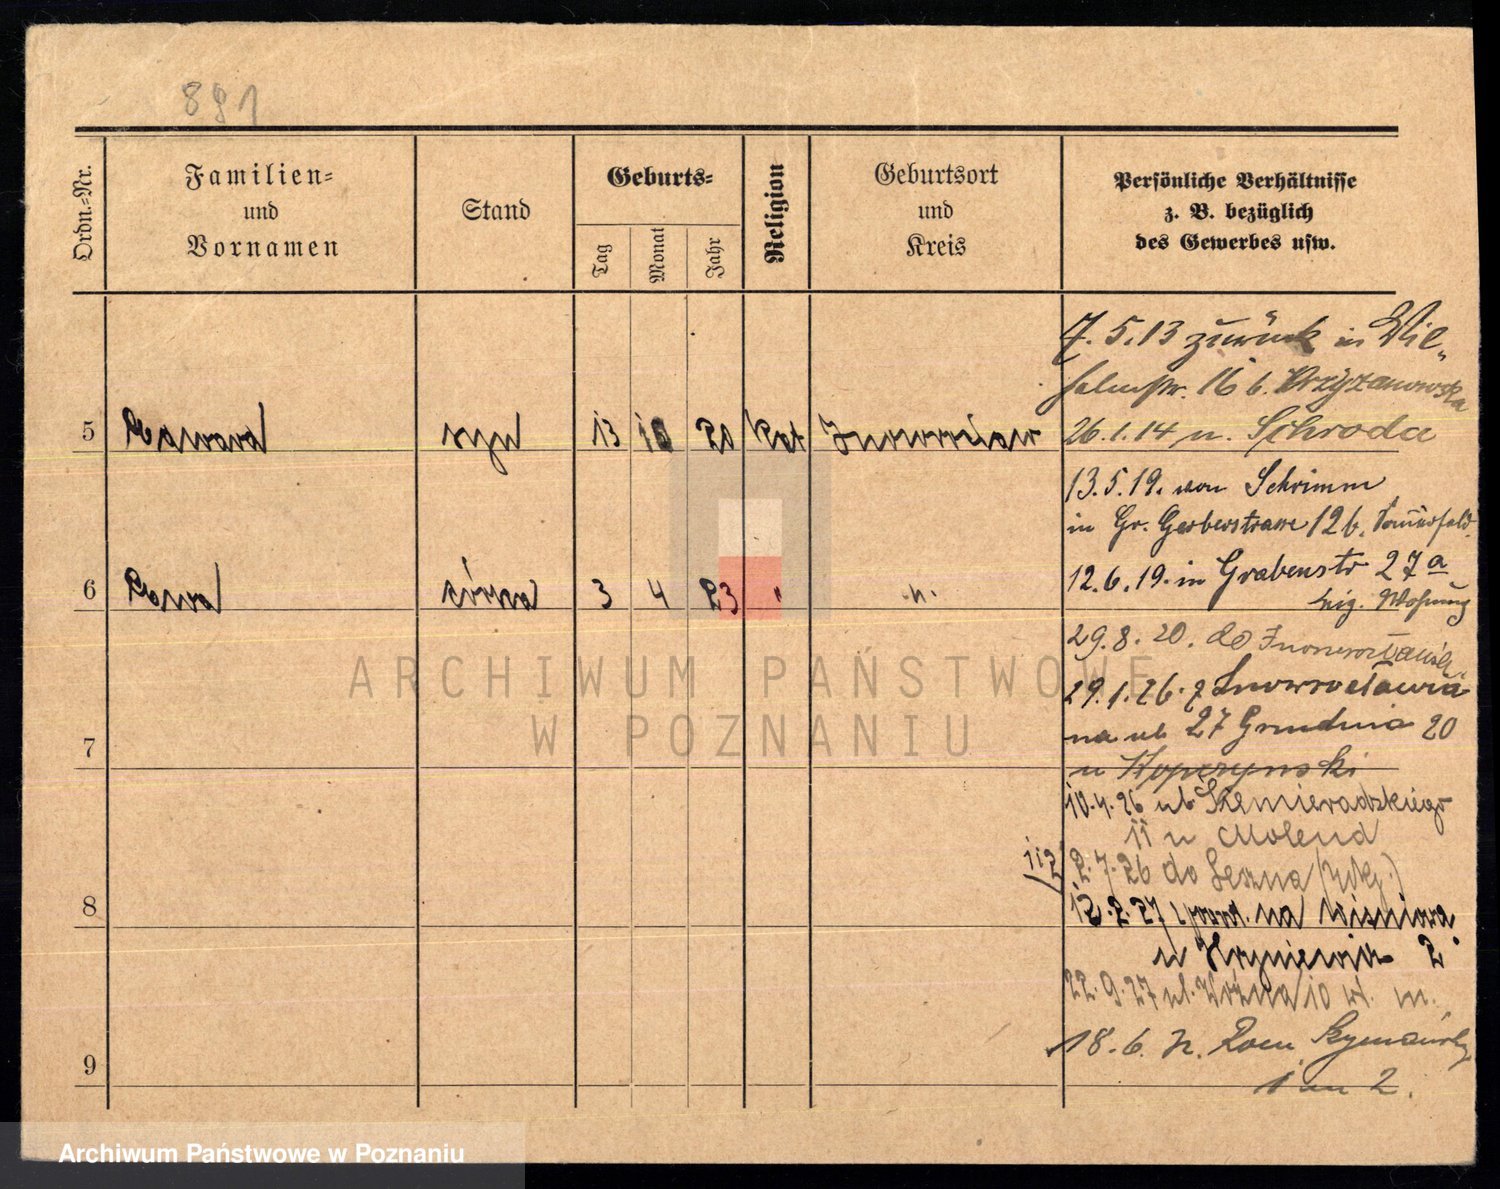 891
Ordn.-Nr.
Familien-
und
Vornamen
Stand
Geburts-
Tag
Monat
Jahr
Religion
Geburtsort
und
Kreis
Persönliche Verhältnisse
z. B. bezüglich
des Gewerbes usw.
7.5.13 zurück in Wil-
helmstr. 16 b. Krzyzanowska
5 Edward syn 13 10 20 kat Inowrocław
26.1.14 n. Schroda
13.5.19. von Schrimm
in Gr. Gerberstrasse 12 b.
12.6.19. in Grabenstr 27a
eig. Wohnung
6 córka 3 4 23 " "
29.8.20. do
29.1.26. z Inowrocławia
na ul 27 Grudnia 20
7
u Kopczynski
10.4.26 ul Siemieradzkiego
11 u Molend
2.7.26 do Leszna
8
12.2.27 na
u 2
22.9.27 ul. Woźna 10 wł. m.
18.6.
9
1 m 2.
ARCHIWUM PAŃSTWOWE
W POZNANIU
Archiwum Państwowe w Poznaniu